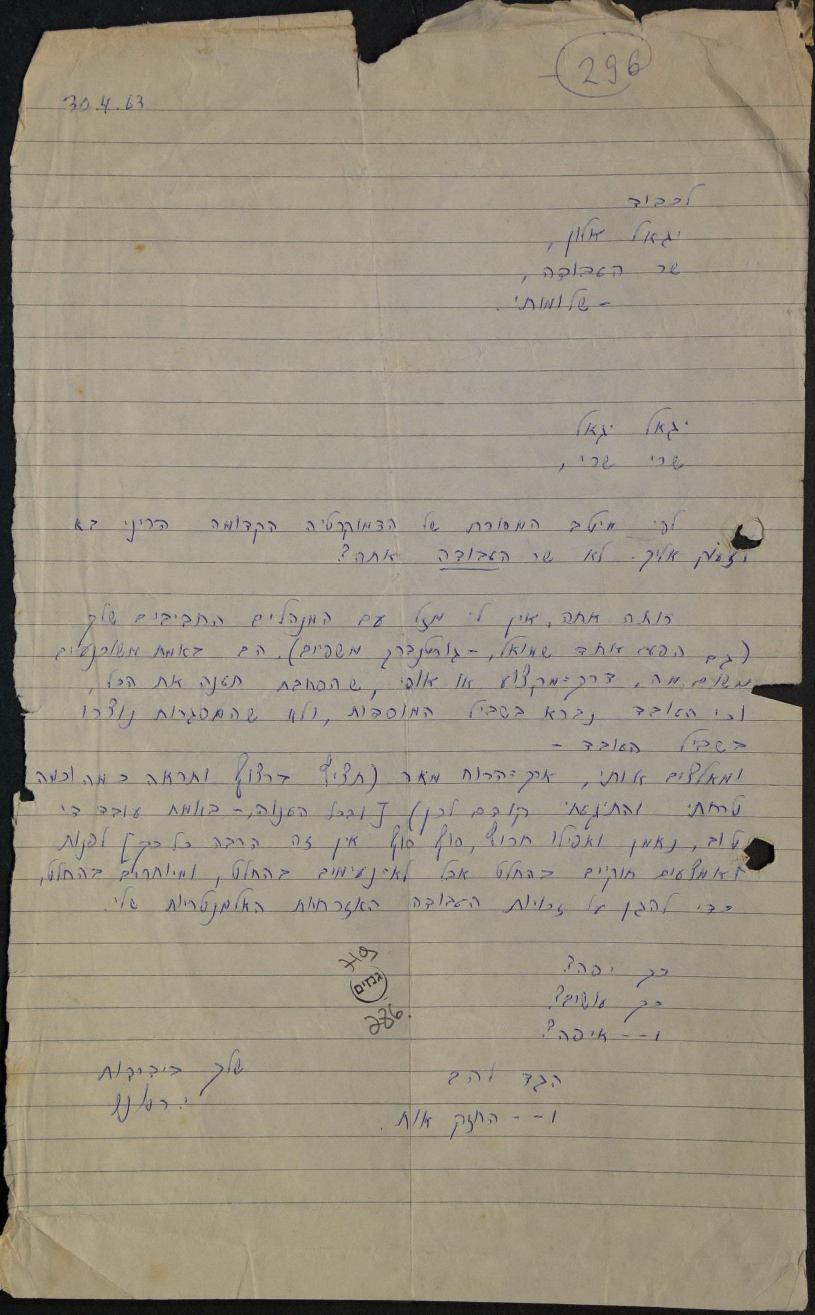 296
30.4.63
לכבוד
יגאל אלון,
שר העבודה,
- שלומותי.
יגאל יגאל
שרי שרי,
לפי מיטב המסורת של הדמוקרטיה הקדומה הריני בא
לזעוק אליך. לא שר העבודה אתה?
רואה אתה, אין לי מזל עם המנהלים החביבים שלך
(גם הפעם אחד שמואל, - משפיים). הם באמת משוכנעים
משום מה, דרך-מקצוע או אופי, שהסחבת תענה את הכל,
וכי העובד נברא בשביל המוסדות, ולא שהמסגרות נוצרו
בשביל העובד -
ומאלצים אותי, ארך-הרוח מאד (תציץ ברצוף ותראה כמה וכמה
טרחתי והתיגעתי קודם לכן) [ובכל הענוה, - באמת עובד די
טוב, נאמן ואפילו חרוץ, סוף סוף אין זה הרבה כל כך] לפנות
לאמצעים חוקיים בהחלט אבל לא-נעימים בהחלט, ומיותרים בהחלט,
כדי להגן על זכויות העבודה האזרחיות האלמנטריות שלי.
כך יפה?
כך עושים?
ו-- איפה?
הגד להם
ו-- החזק אות.
שלך בידידות
גנזים
286.